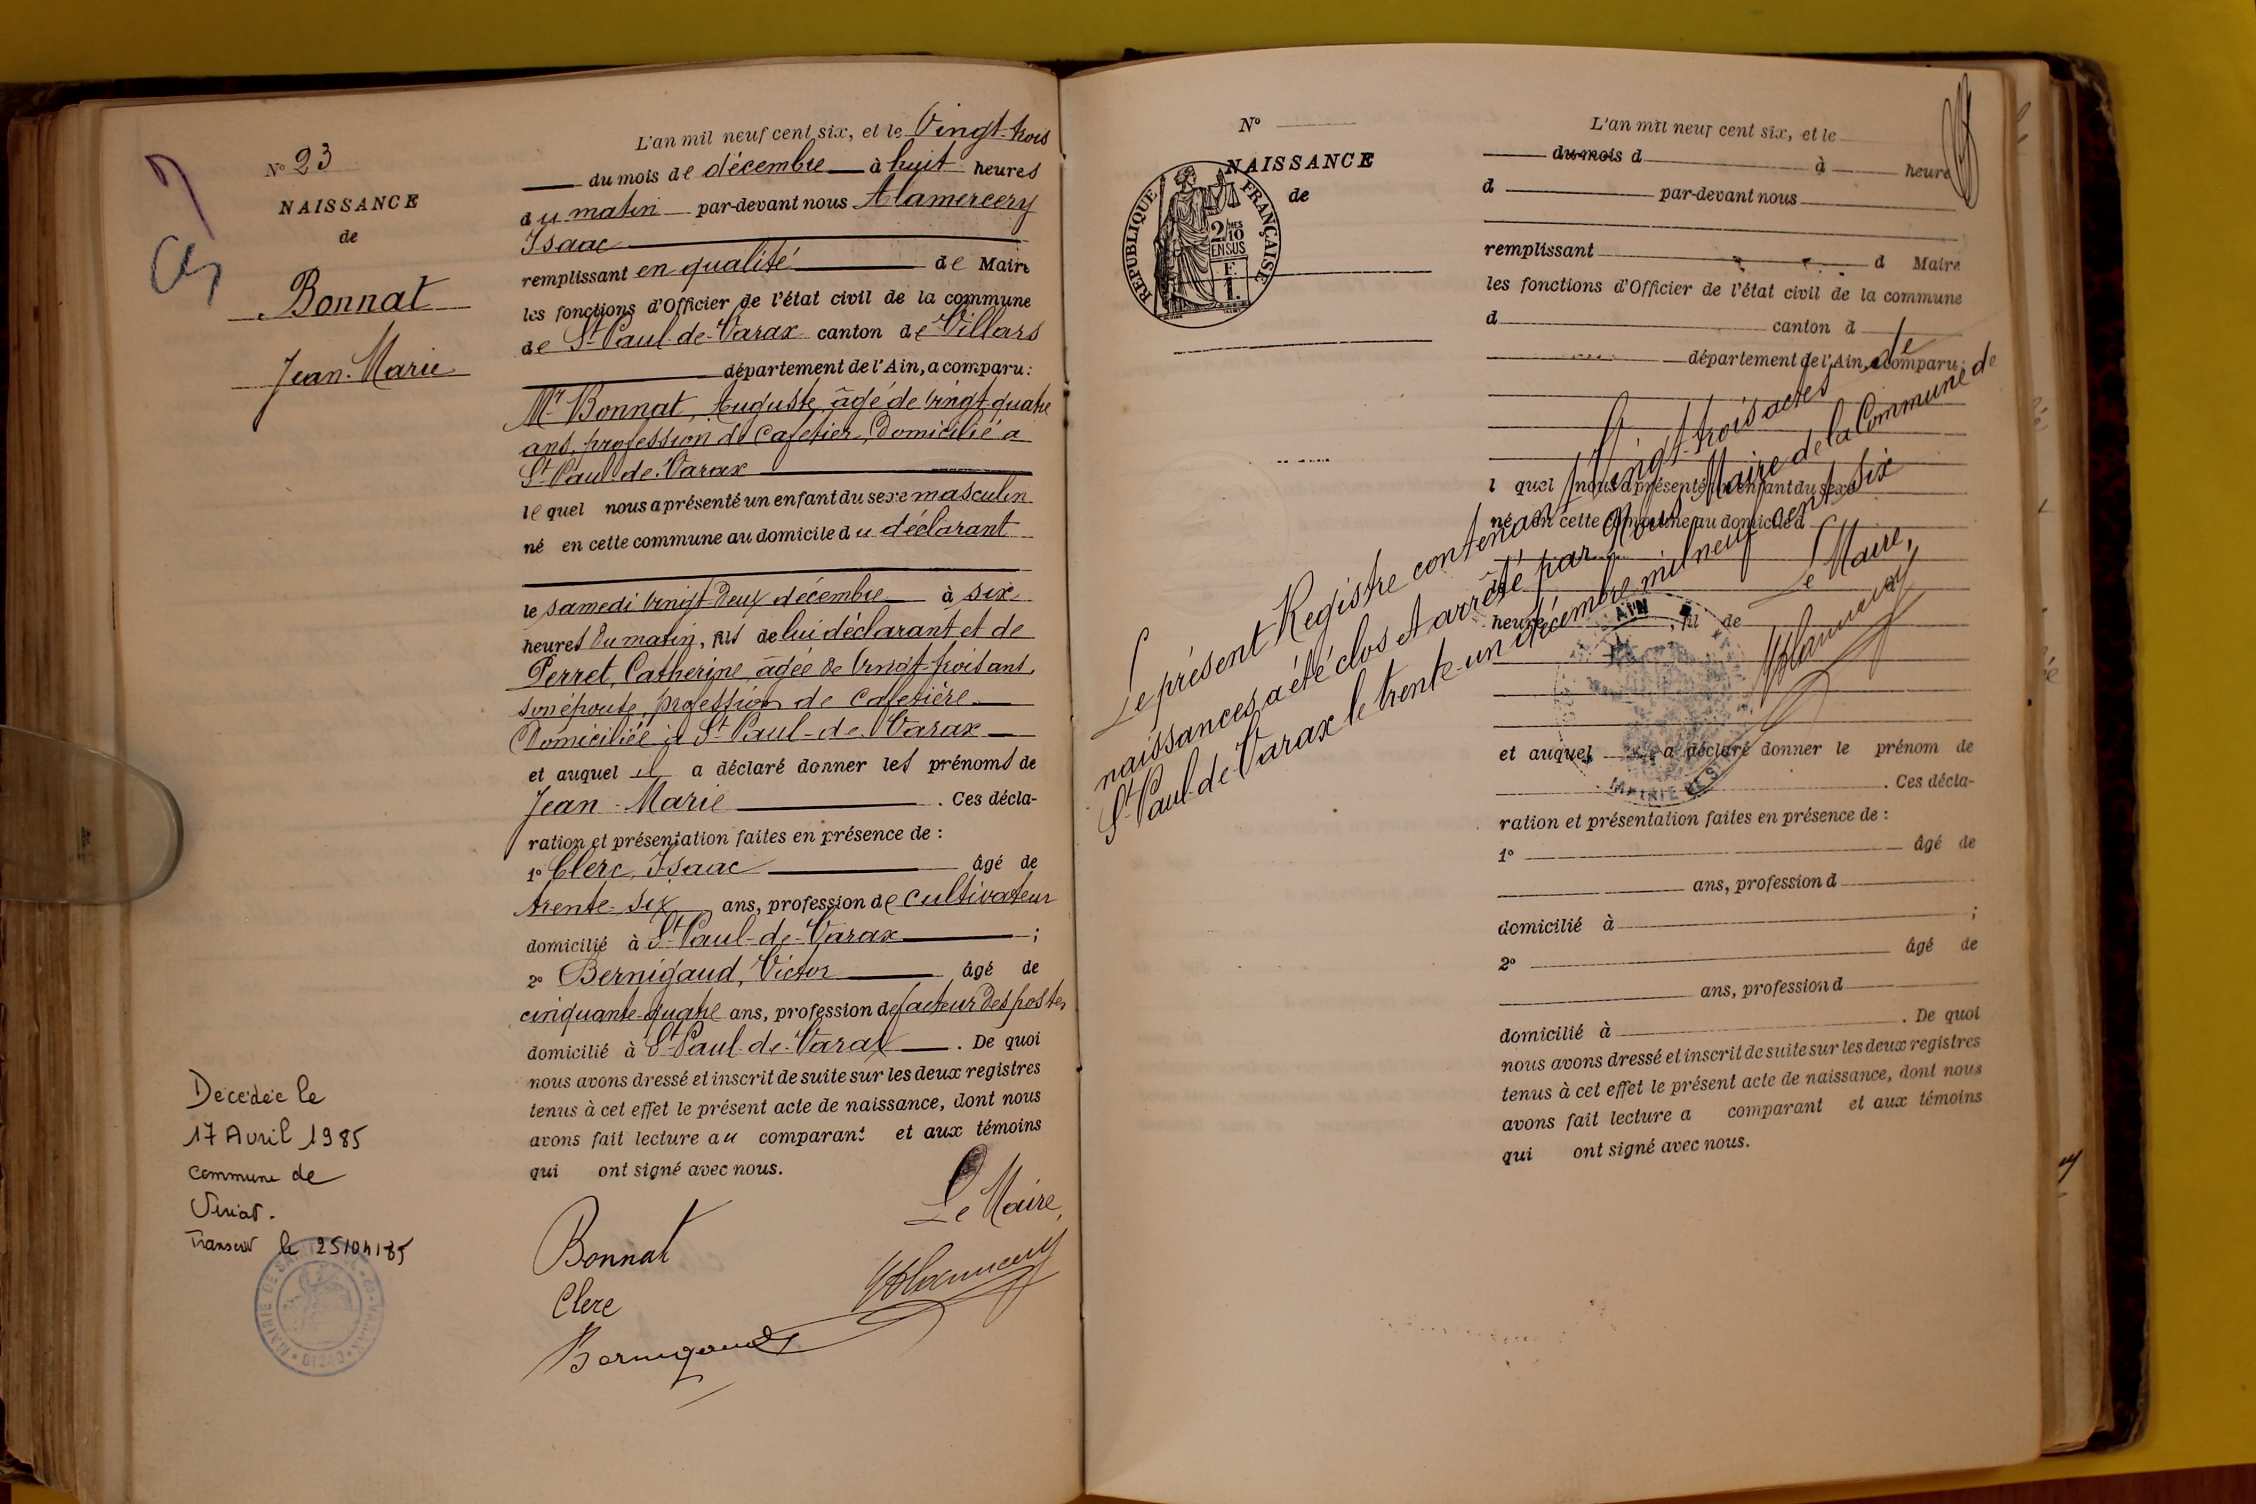 N° 23
NAISSANCE
de
Bonnat
Jean-Marie
Décédée le
17 Avril 1985
commune de
Viriat.
Transcrit le 25/04/85
L'an mil neuf cent six, et le Vingt-trois
du mois de décembre à huit heures
du matin par-devant nous Alamercery
Isaac
remplissant en qualité de Maire
les fonctions d'Officier de l'état civil de la commune
de St Paul-de-Varax canton de Villars
département de l'Ain, a comparu:
Mr Bonnat, Auguste, âgé de vingt-quatre
ans, profession de Cafetier, Domicilié à
St Paul-de-Varax
lequel nous a présenté un enfant du sexe masculin
né en cette commune au domicile du déclarant
le samedi vingt-deux décembre à six
heures du matin, fils de lui déclarant et de
Perret, Catherine, âgée de Vingt-trois ans,
son épouse, profession de cafetière
Domiciliée à St Paul-de-Varax
et auquel il a déclaré donner les prénoms de
Jean-Marie . Ces décla-
ration et présentation faites en présence de :
1° Clerc, Isaac âgé de
trente-six ans, profession de cultivateur
domicilié à St Paul-de-Varax ;
2° Bernigaud, Victor âgé de
cinquante-quatre ans, profession de facteur des postes
domicilié à St Paul-de-Varax . De quoi
nous avons dressé et inscrit de suite sur les deux registres
tenus à cet effet le présent acte de naissance, dont nous
avons fait lecture au comparant et aux témoins
qui ont signé avec nous.
Le Maire,
Bonnat
Clerc
Bernigaud
N°
NAISSANCE
de
RÉPUBLIQUE FRANÇAISE
2/10
EN SUS
L'an mil neuf cent six, et le
du mois d à heure
d par-devant nous
remplissant d Maire
les fonctions d'Officier de l'état civil de la commune
d canton d
département de l'Ain, a comparu:
l quel nous a présenté un enfant du sexe
né en cette commune au domicile d
heure , fil de
et auquel a déclaré donner le prénom de
. Ces décla-
ration et présentation faites en présence de :
1° âgé de
ans, profession d
domicilié à ;
2° âgé de
ans, profession d
domicilié à . De quoi
nous avons dressé et inscrit de suite sur les deux registres
tenus à cet effet le présent acte de naissance, dont nous
avons fait lecture a comparant et aux témoins
qui ont signé avec nous.
Le présent Registre contenant Vingt-trois actes de
naissances a été clos et arrêté par Nous Maire de la Commune de
St Paul-de-Varax le trente-un décembre mil neuf cent six
Le Maire,
AIN